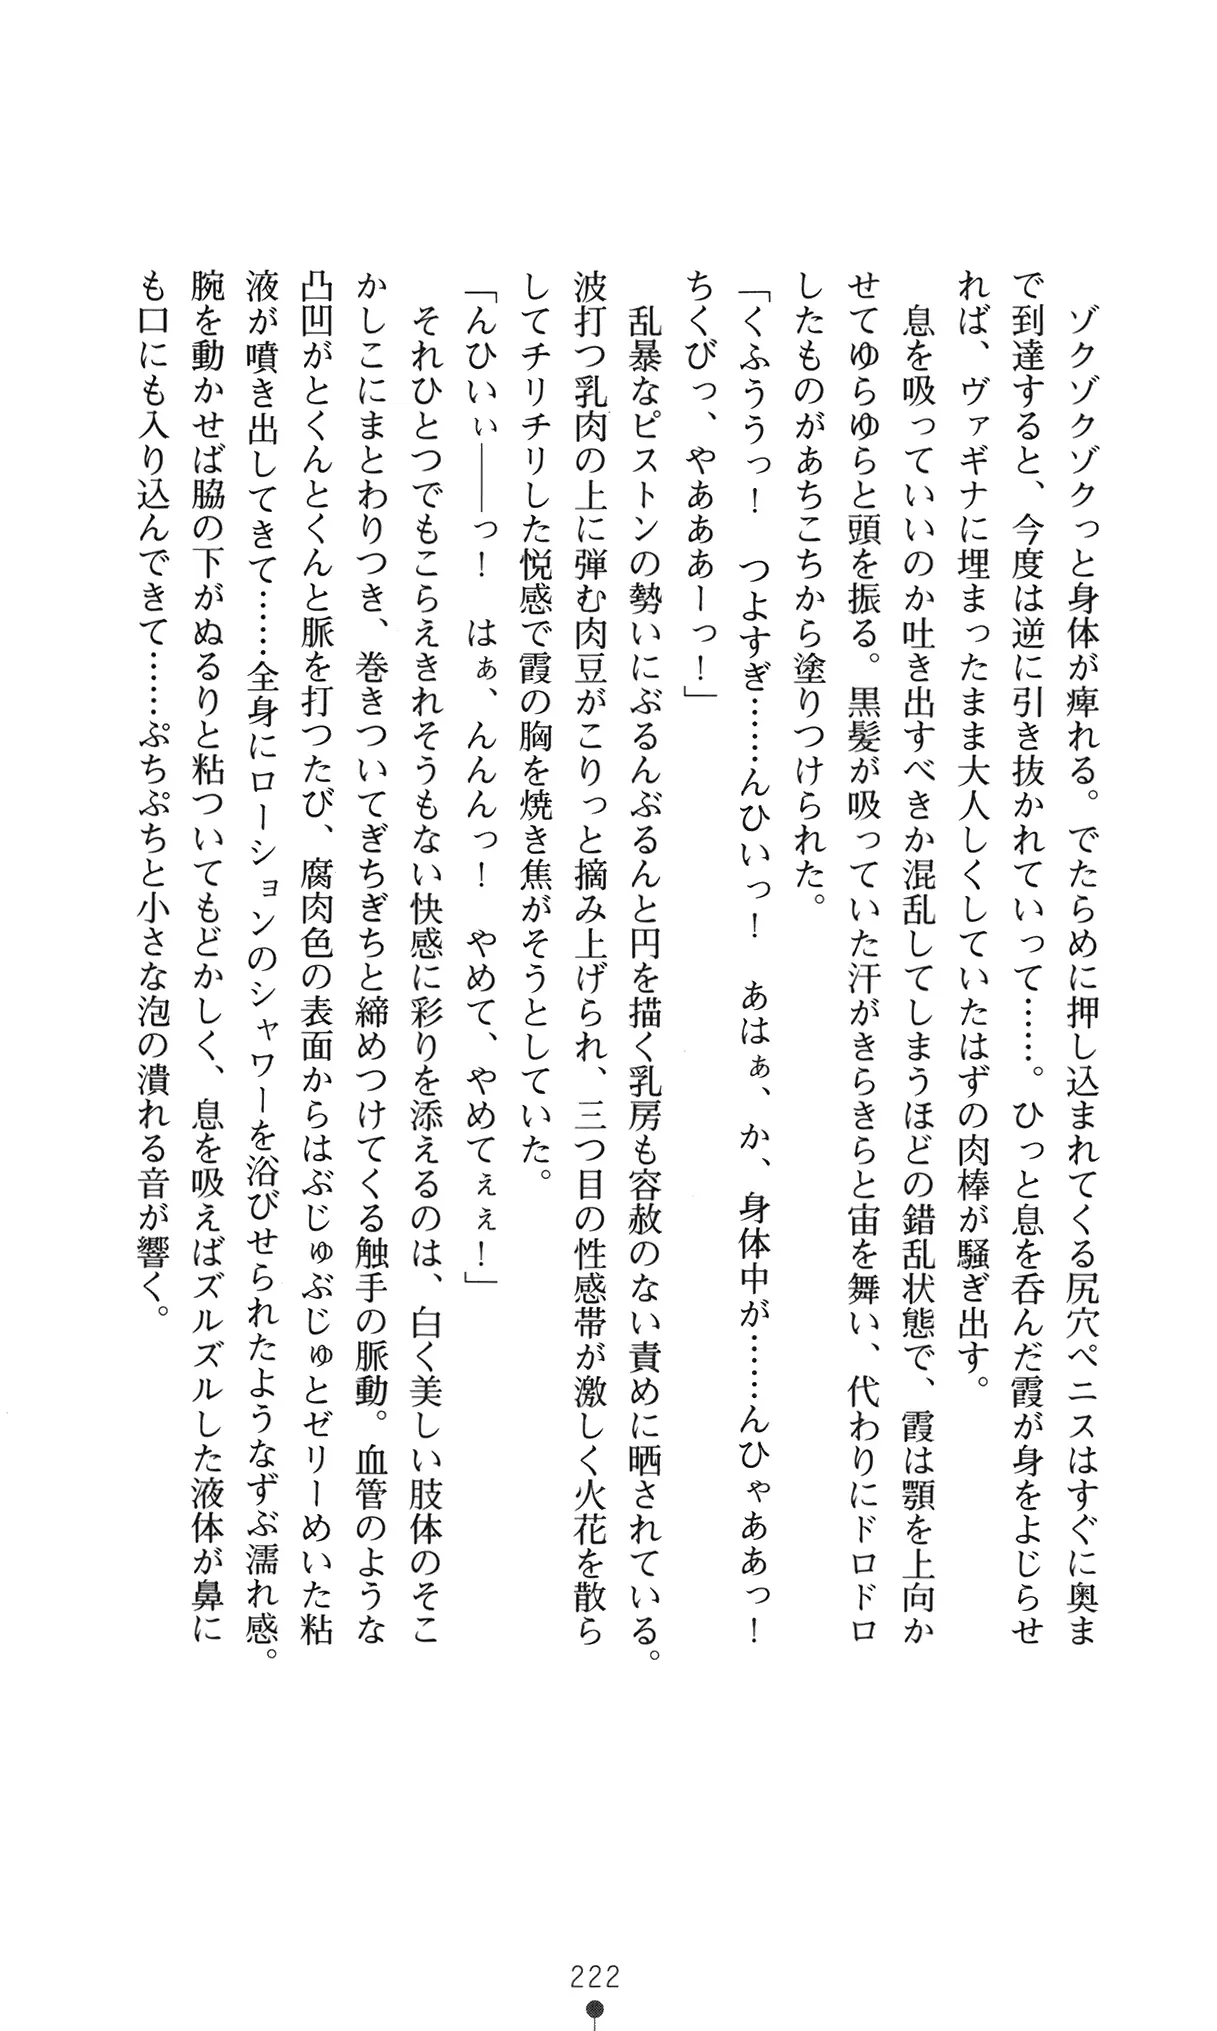 ゾクゾクゾクっと身体が痺れる。でたらめに押し込まれてくる尻穴ペニスはすぐに奥ま
で到達すると、今度は逆に引き抜かれていって……。ひっと息を呑んだ霞が身をよじらせ
れば、ヴァギナに埋まったまま大人しくしていたはずの肉棒が騒ぎ出す。
息を吸っていいのか吐き出すべきか混乱してしまうほどの錯乱状態で、霞は顎を上向か
せてゆらゆらと頭を振る。黒髪が吸っていた汗がきらきらと宙を舞い、代わりにドロドロ
したものがあちこちから塗りつけられた。
「くふううっ！　つよすぎ……んひいっ！　あはぁ、か、身体中が……んひゃああっ！
ちくびっ、やあああーっ！」
乱暴なピストンの勢いにぶるんぶるんと円を描く乳房も容赦のない責めに晒されている。
波打つ乳肉の上に弾む肉豆がこりっと摘み上げられ、三つ目の性感帯が激しく火花を散ら
してチリチリした悦感で霞の胸を焼き焦がそうとしていた。
「んひいぃ――っ！　はぁ、んんんっ！　やめて、やめてぇぇ！」
それひとつでもこらえきれそうもない快感に彩りを添えるのは、白く美しい肢体のそこ
かしこにまとわりつき、巻きついてぎちぎちと締めつけてくる触手の脈動。血管のような
凸凹がとくんとくんと脈を打つたび、腐肉色の表面からはぶじゅぶじゅとゼリーめいた粘
液が噴き出してきて……全身にローションのシャワーを浴びせられたようなずぶ濡れ感。
腕を動かせば脇の下がぬるりと粘ついてもどかしく、息を吸えばズルズルした液体が鼻に
も口にも入り込んできて……ぷちぷちと小さな泡の潰れる音が響く。
222